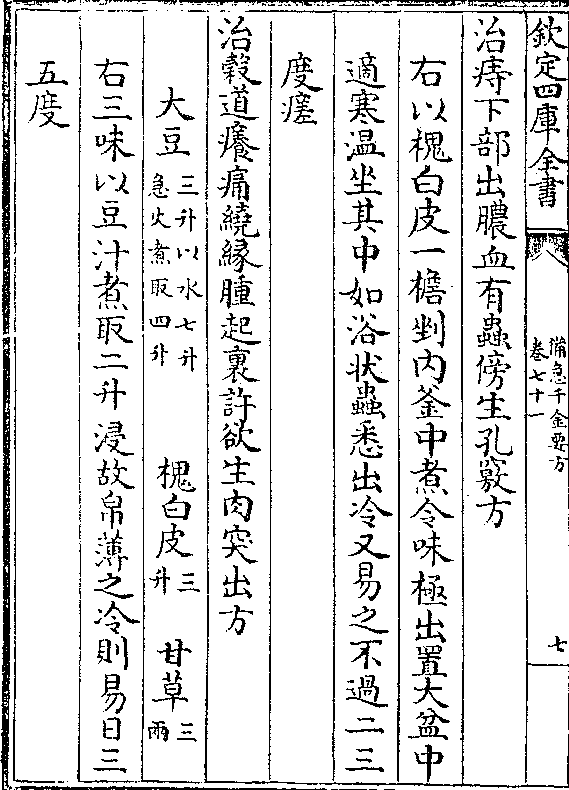 欽定四庫全書
備急千金要方
卷七十一
七
治痔下部出膿血有蟲傍生孔竅方
右以槐白皮一檐剉內釜中煮令味極出置大盆中
適寒温坐其中如浴狀蟲悉出冷又易之不過二三
度瘥
治穀道癢痛繞緣腫起裏許欲生肉突出方
大豆三升以水七升急火煮取四升 槐白皮三升 甘草三兩
右三味以豆汁煮取二升浸故帛薄之冷則易日三
五度